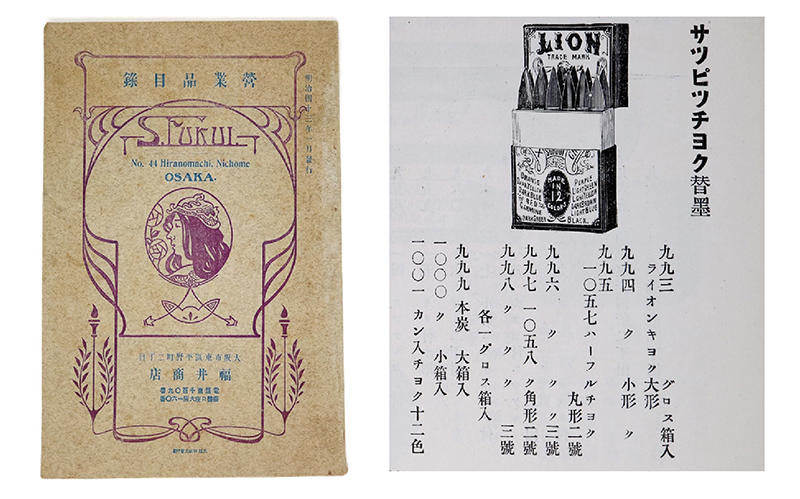 營業品目錄
明治四十三年 月發行
S. FUKUI.
No. 44 Hiranomachi, Nichome
OSAKA.
大阪市東區平野町二丁目
福井商店
サツピツチヨク替墨
LION
TRADE MARK
MADE
IN
12
COLORS
ORANGE
DARK BLUE
RED
CARMINE
DARK GREEN
PURPLE
LIGHT GREEN
LIGHT BLUE
BLACK
九九三 ライオンキヨク大形 グロス箱入
九九四 〃 小形 〃
九九五 一〇五七ハーフルチヨク 丸形二號
九九六 〃 〃 〃三號
九九七 一〇五八 〃角形二號
九九八 〃 〃 〃 三號
各一グロス箱入
九九九 本炭 大箱入
一〇〇〇 〃 小箱入
一〇〇一 カン入チヨク十二色